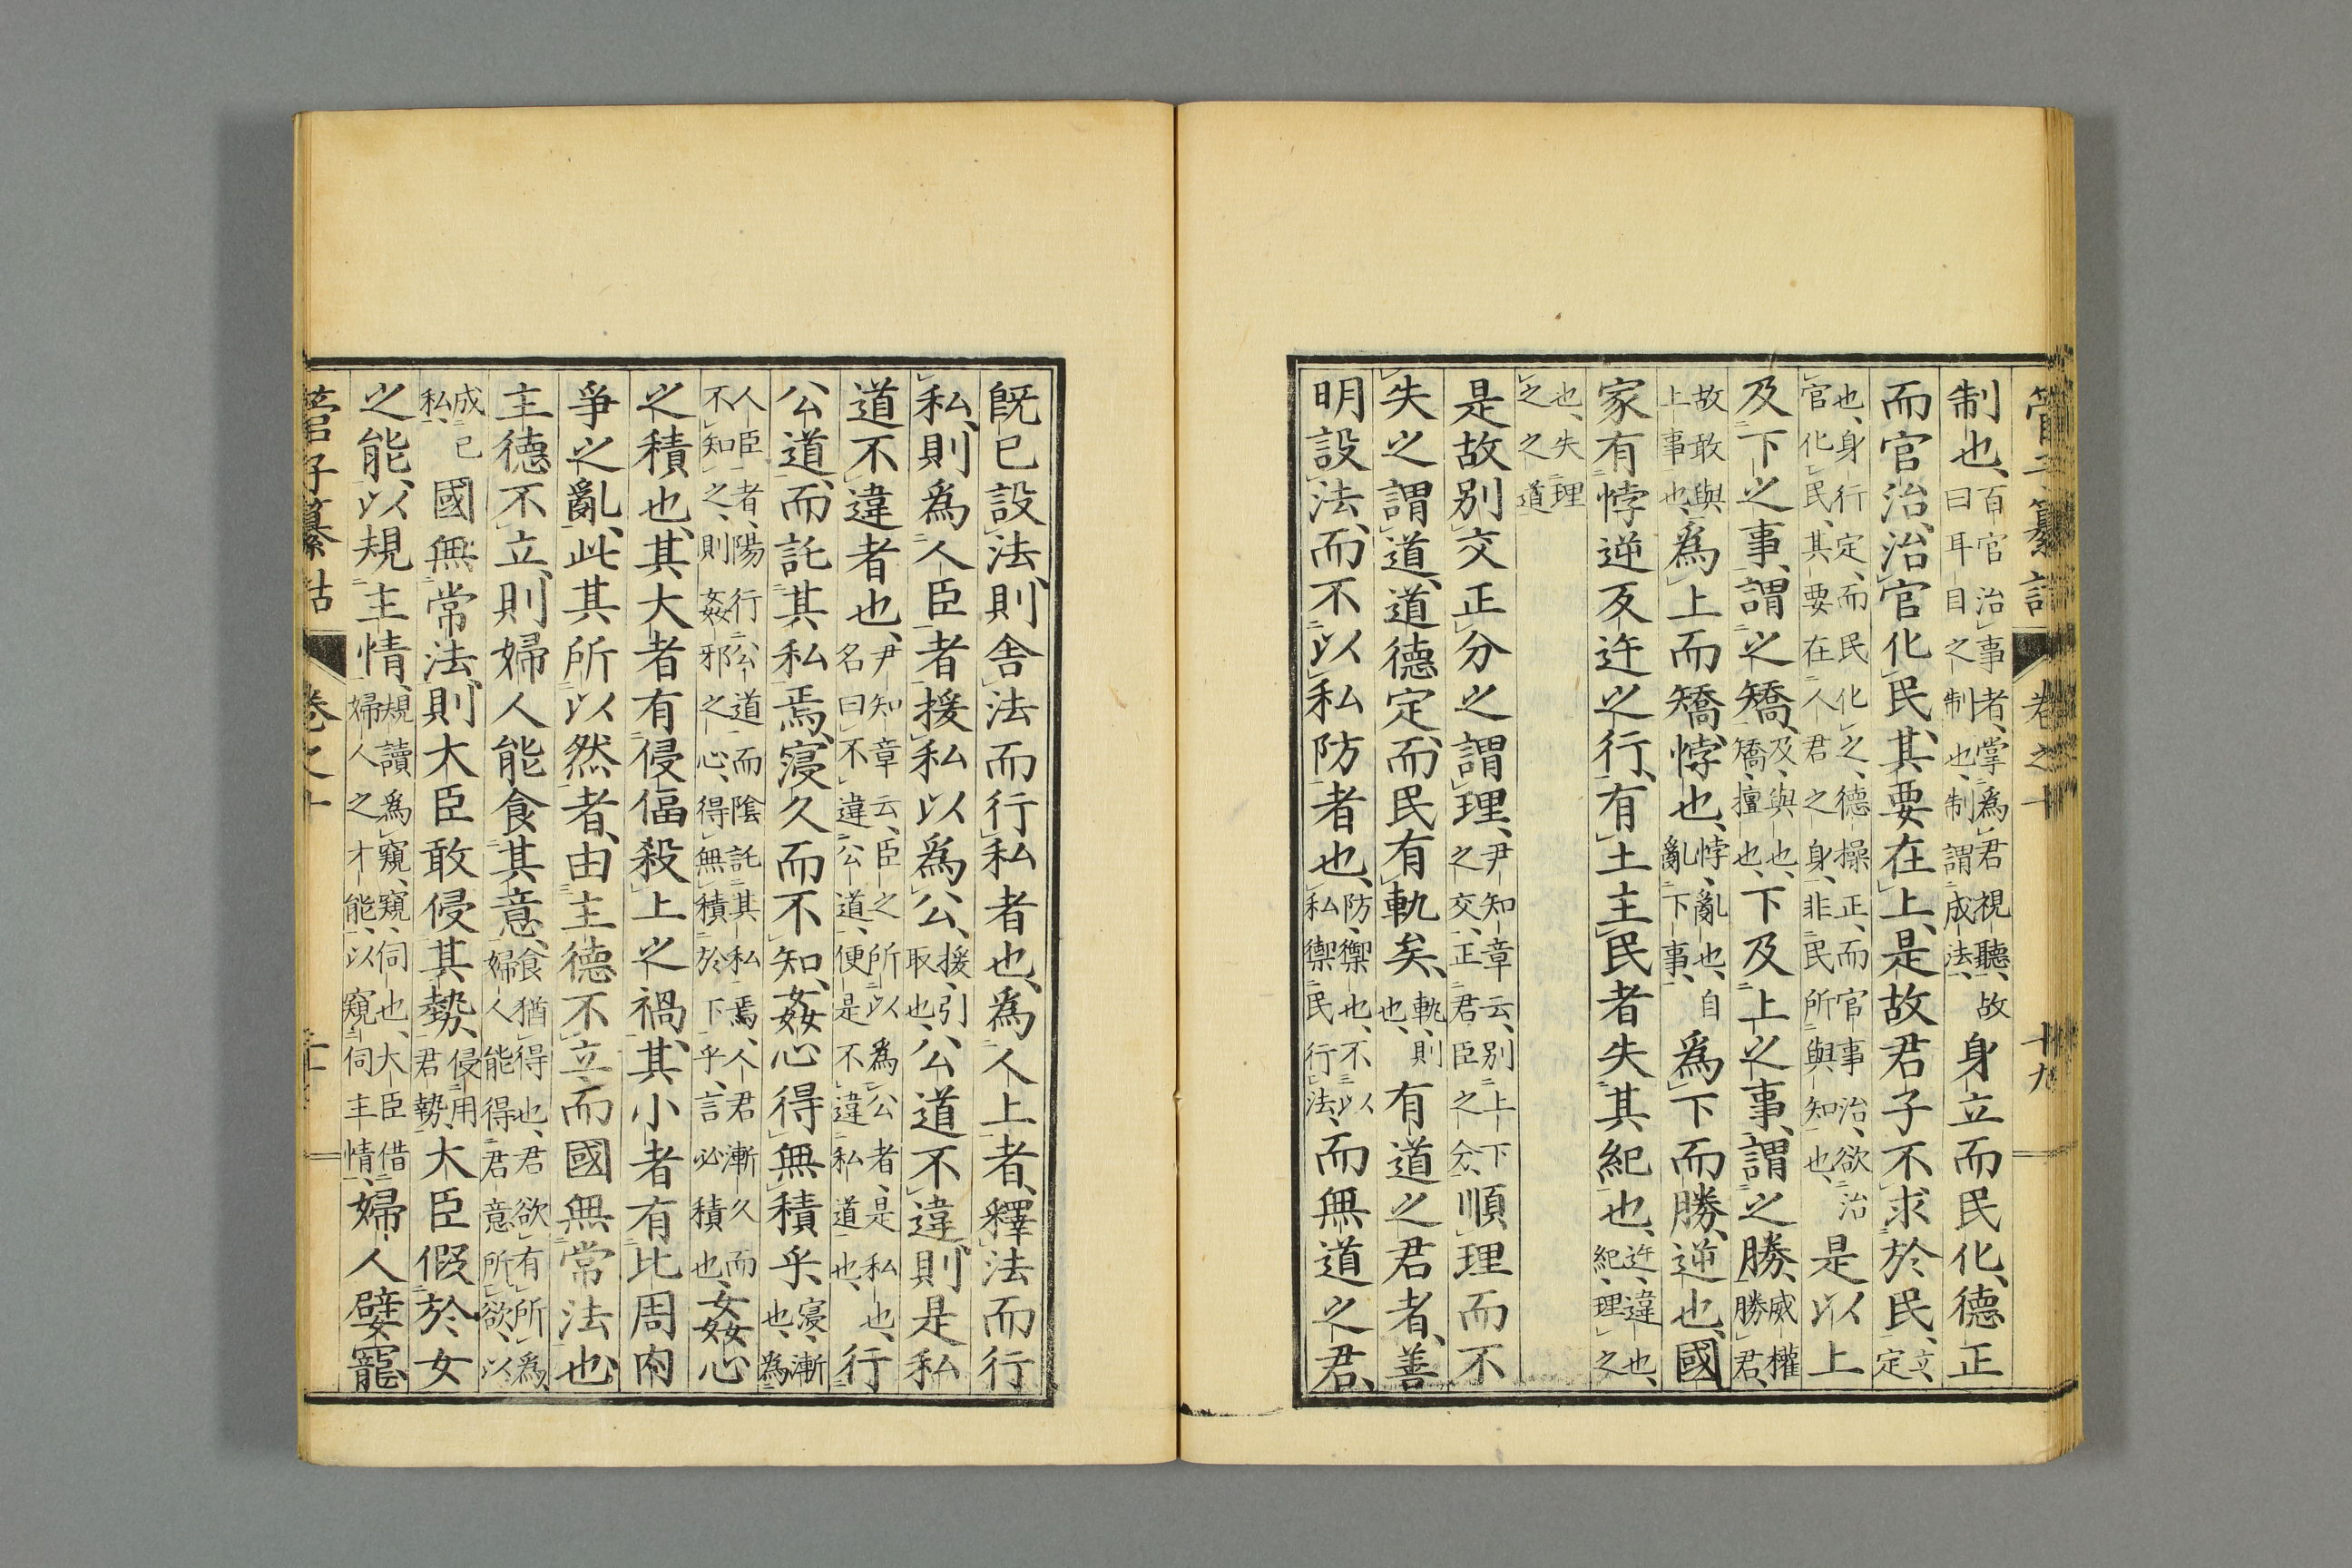 管子纂詁 卷之十 十九
制也、百官治事者、掌爲君視聽、故曰耳目之制也、制謂成法、身立而民化、德正
而官治、治官化民、其要在上、是故君子不求於民、立、定
也、身行定、而民化之、德操正、而官事治、欲治官化民、其要在人君之身、非民所與知也、是以上
及下之事、謂之矯、及、與也、矯、擅也、下及上之事、謂之勝、威權勝君、
故敢與上事也、爲上而矯、悖也、悖、亂也、自亂下事、爲下而勝、逆也、國
家有悖逆反迕之行、有土主民者失其紀也、迕、違也、紀、理之
也、失理之之道
是故別交正分之謂理、尹知章云、別上下之交、正君臣之分、順理而不
失之謂道、道德定、而民有軌矣、軌、則也、有道之君者、善
明設法、而不以私防者也、防、禦也、不以私禦民行法、而無道之君、
既已設法、則舍法而行私者也、爲人上者、釋法而行
私、則爲人臣者、援私以爲公、援、引取也、公道不違、則是私
道不違者也、尹知章云、臣之所以爲公者、是私也、名曰不違公道、便是不違私道也、行
公道、而託其私焉、寖久而不知、姦心得無積乎、寖、漸也、爲
人臣者、陽行公道而陰託其私焉、人君漸久而不知之、則姦邪之心、得無積於下乎、言必積也、姦心
之積也、其大者有侵偪殺上之禍、其小者有比周內
爭之亂、此其所以然者、由主德不立、而國無常法也、
主德不立、則婦人能食其意、食猶得也、君欲有所爲、婦人能得君意所欲、以
成己私、國無常法、則大臣敢侵其勢、侵用君勢、大臣假於女
之能、以規主情、規讀爲窺、窺、伺也、大臣借婦人之才能、以窺伺主情、婦人嬖寵
管子纂詁 卷之十